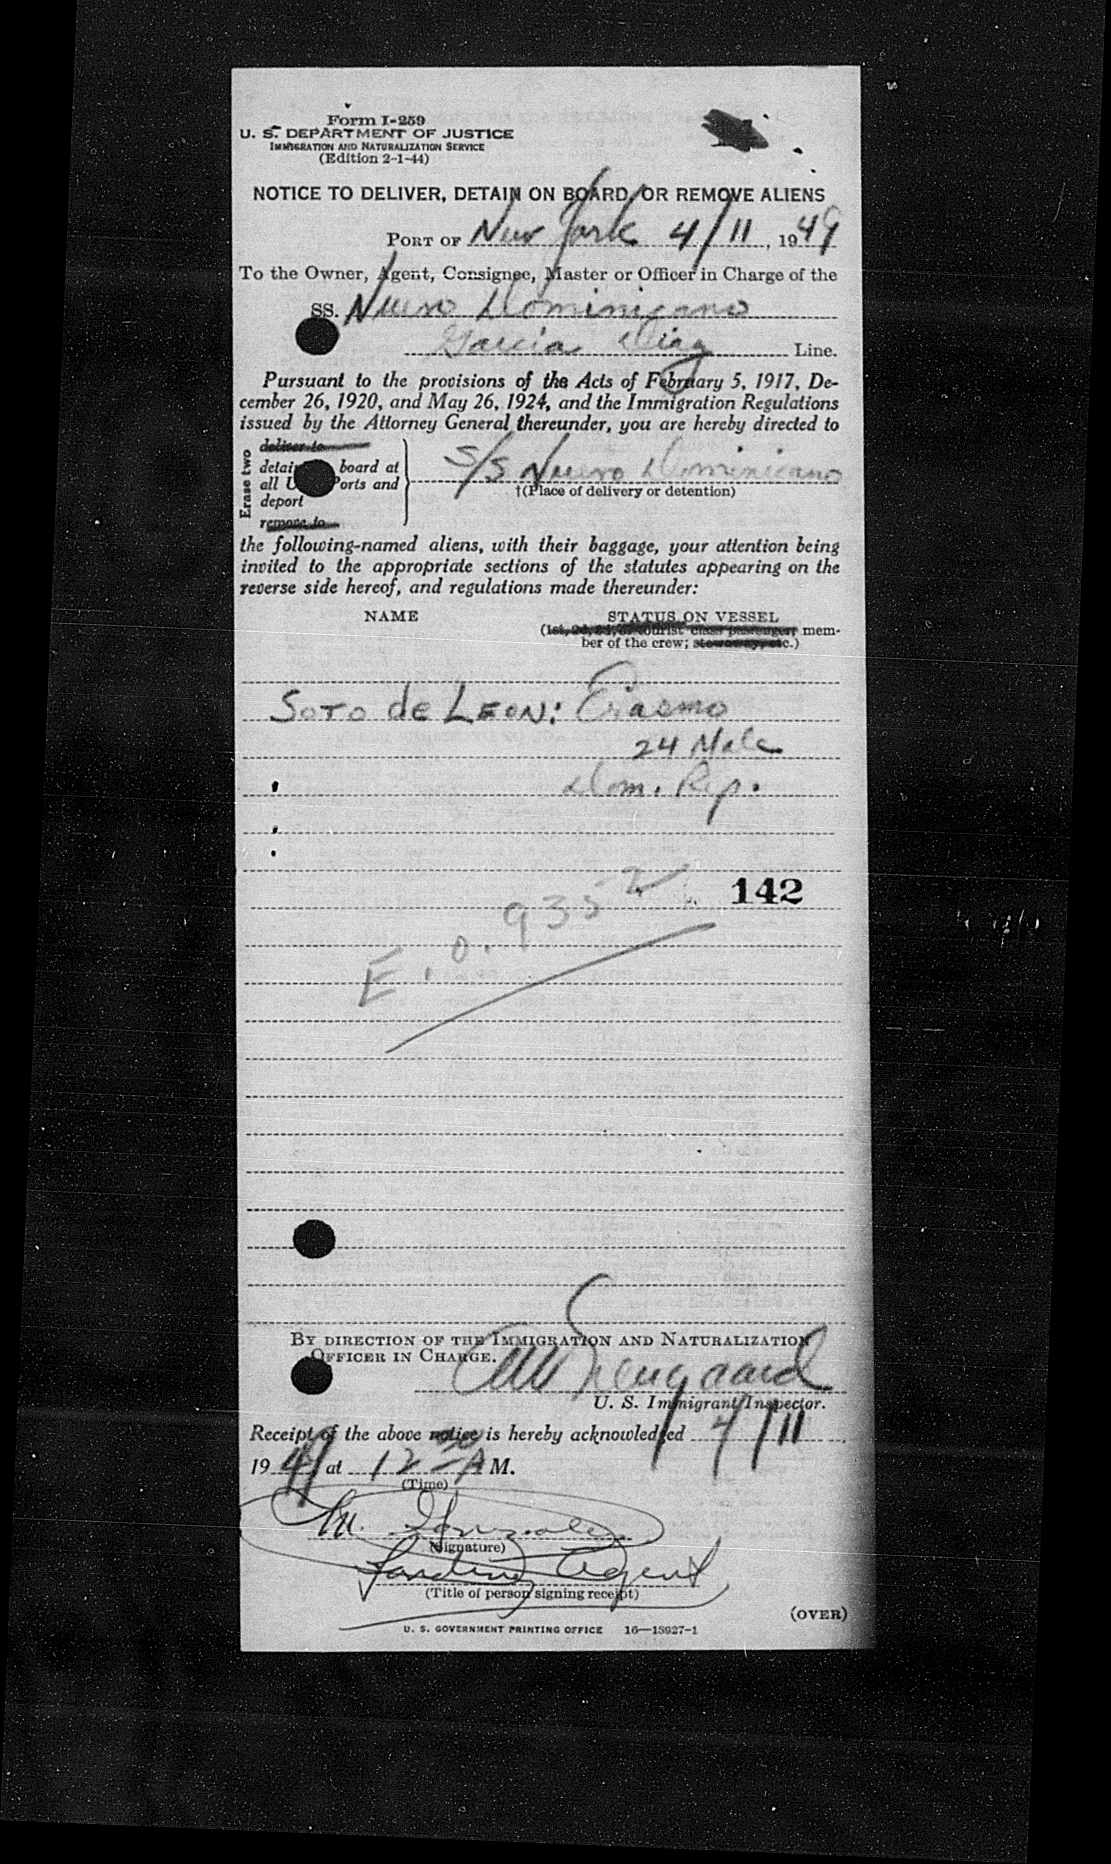 Form I-259
U. S. DEPARTMENT OF JUSTICE
IMMIGRATION AND NATURALIZATION SERVICE
(Edition 2-1-44)
NOTICE TO DELIVER, DETAIN ON BOARD, OR REMOVE ALIENS
PORT OF New York 4/11, 1949
To the Owner, Agent, Consignee, Master or Officer in Charge of the
SS. Nuevo Dominicano
Garcia Diaz Line.
Pursuant to the provisions of the Acts of February 5, 1917, De-
cember 26, 1920, and May 26, 1924, and the Immigration Regulations
issued by the Attorney General thereunder, you are hereby directed to
Erase two
deliver to
detain board at S/S Nuevo Dominicano
all U Ports and †(Place of delivery or detention)
deport
remove to
the following-named aliens, with their baggage, your attention being
invited to the appropriate sections of the statutes appearing on the
reverse side hereof, and regulations made thereunder:
NAME STATUS ON VESSEL
(1st, 2d, 3d, or tourist class passenger; mem-
ber of the crew; stowaway, etc.)
SOTO de LEON: Erasmo
24 Male
Dom. Rep.
142
E.O. 9352
BY DIRECTION OF THE IMMIGRATION AND NATURALIZATION
OFFICER IN CHARGE.
U. S. Immigrant Inspector.
Receipt of the above notice is hereby acknowledged 4/11
1949 at 12 30 A M.
(Time)
M. Gonzalez
(Signature)
Landing Agent
(Title of person signing receipt)
(OVER)
U. S. GOVERNMENT PRINTING OFFICE 16—13927-1